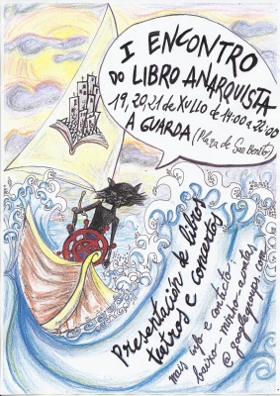 I ENCONTRO
DO LIBRO ANARQUISTA
19, 20, 21 de XULLO de 14:00 a 22:00
A GUARDA (Plaza de San Benito)
Presentación de libros
teatros e concertos
mais info e contacto:
baixo-minho-
@googlegroups.com